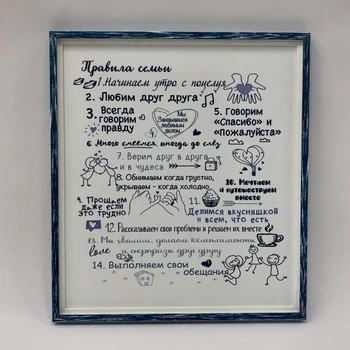 Правила семьи
1. Начинаем утро с поцелуя
2. Любим друг друга
3. Всегда
говорим
правду
Мы
Занимаемся
любимым
делом
5. Говорим
«Спасибо» и
«Пожалуйста»
6. Много смеемся, иногда до слёз
7. Верим друг в друга
и в чудеса
8. Обнимаем когда грустно,
укрываем - когда холодно
9. Прощаем
даже если
это трудно
10. Мечтаем
и путешествуем
вместе
11.
Делимся вкусняшкой
и всем, что есть
12. Рассказываем свои проблемы и решаем их вместе
13. Мы хвалим, делаем комплименты
love
и сюрпризы друг другу
14. Выполняем свои
обещания